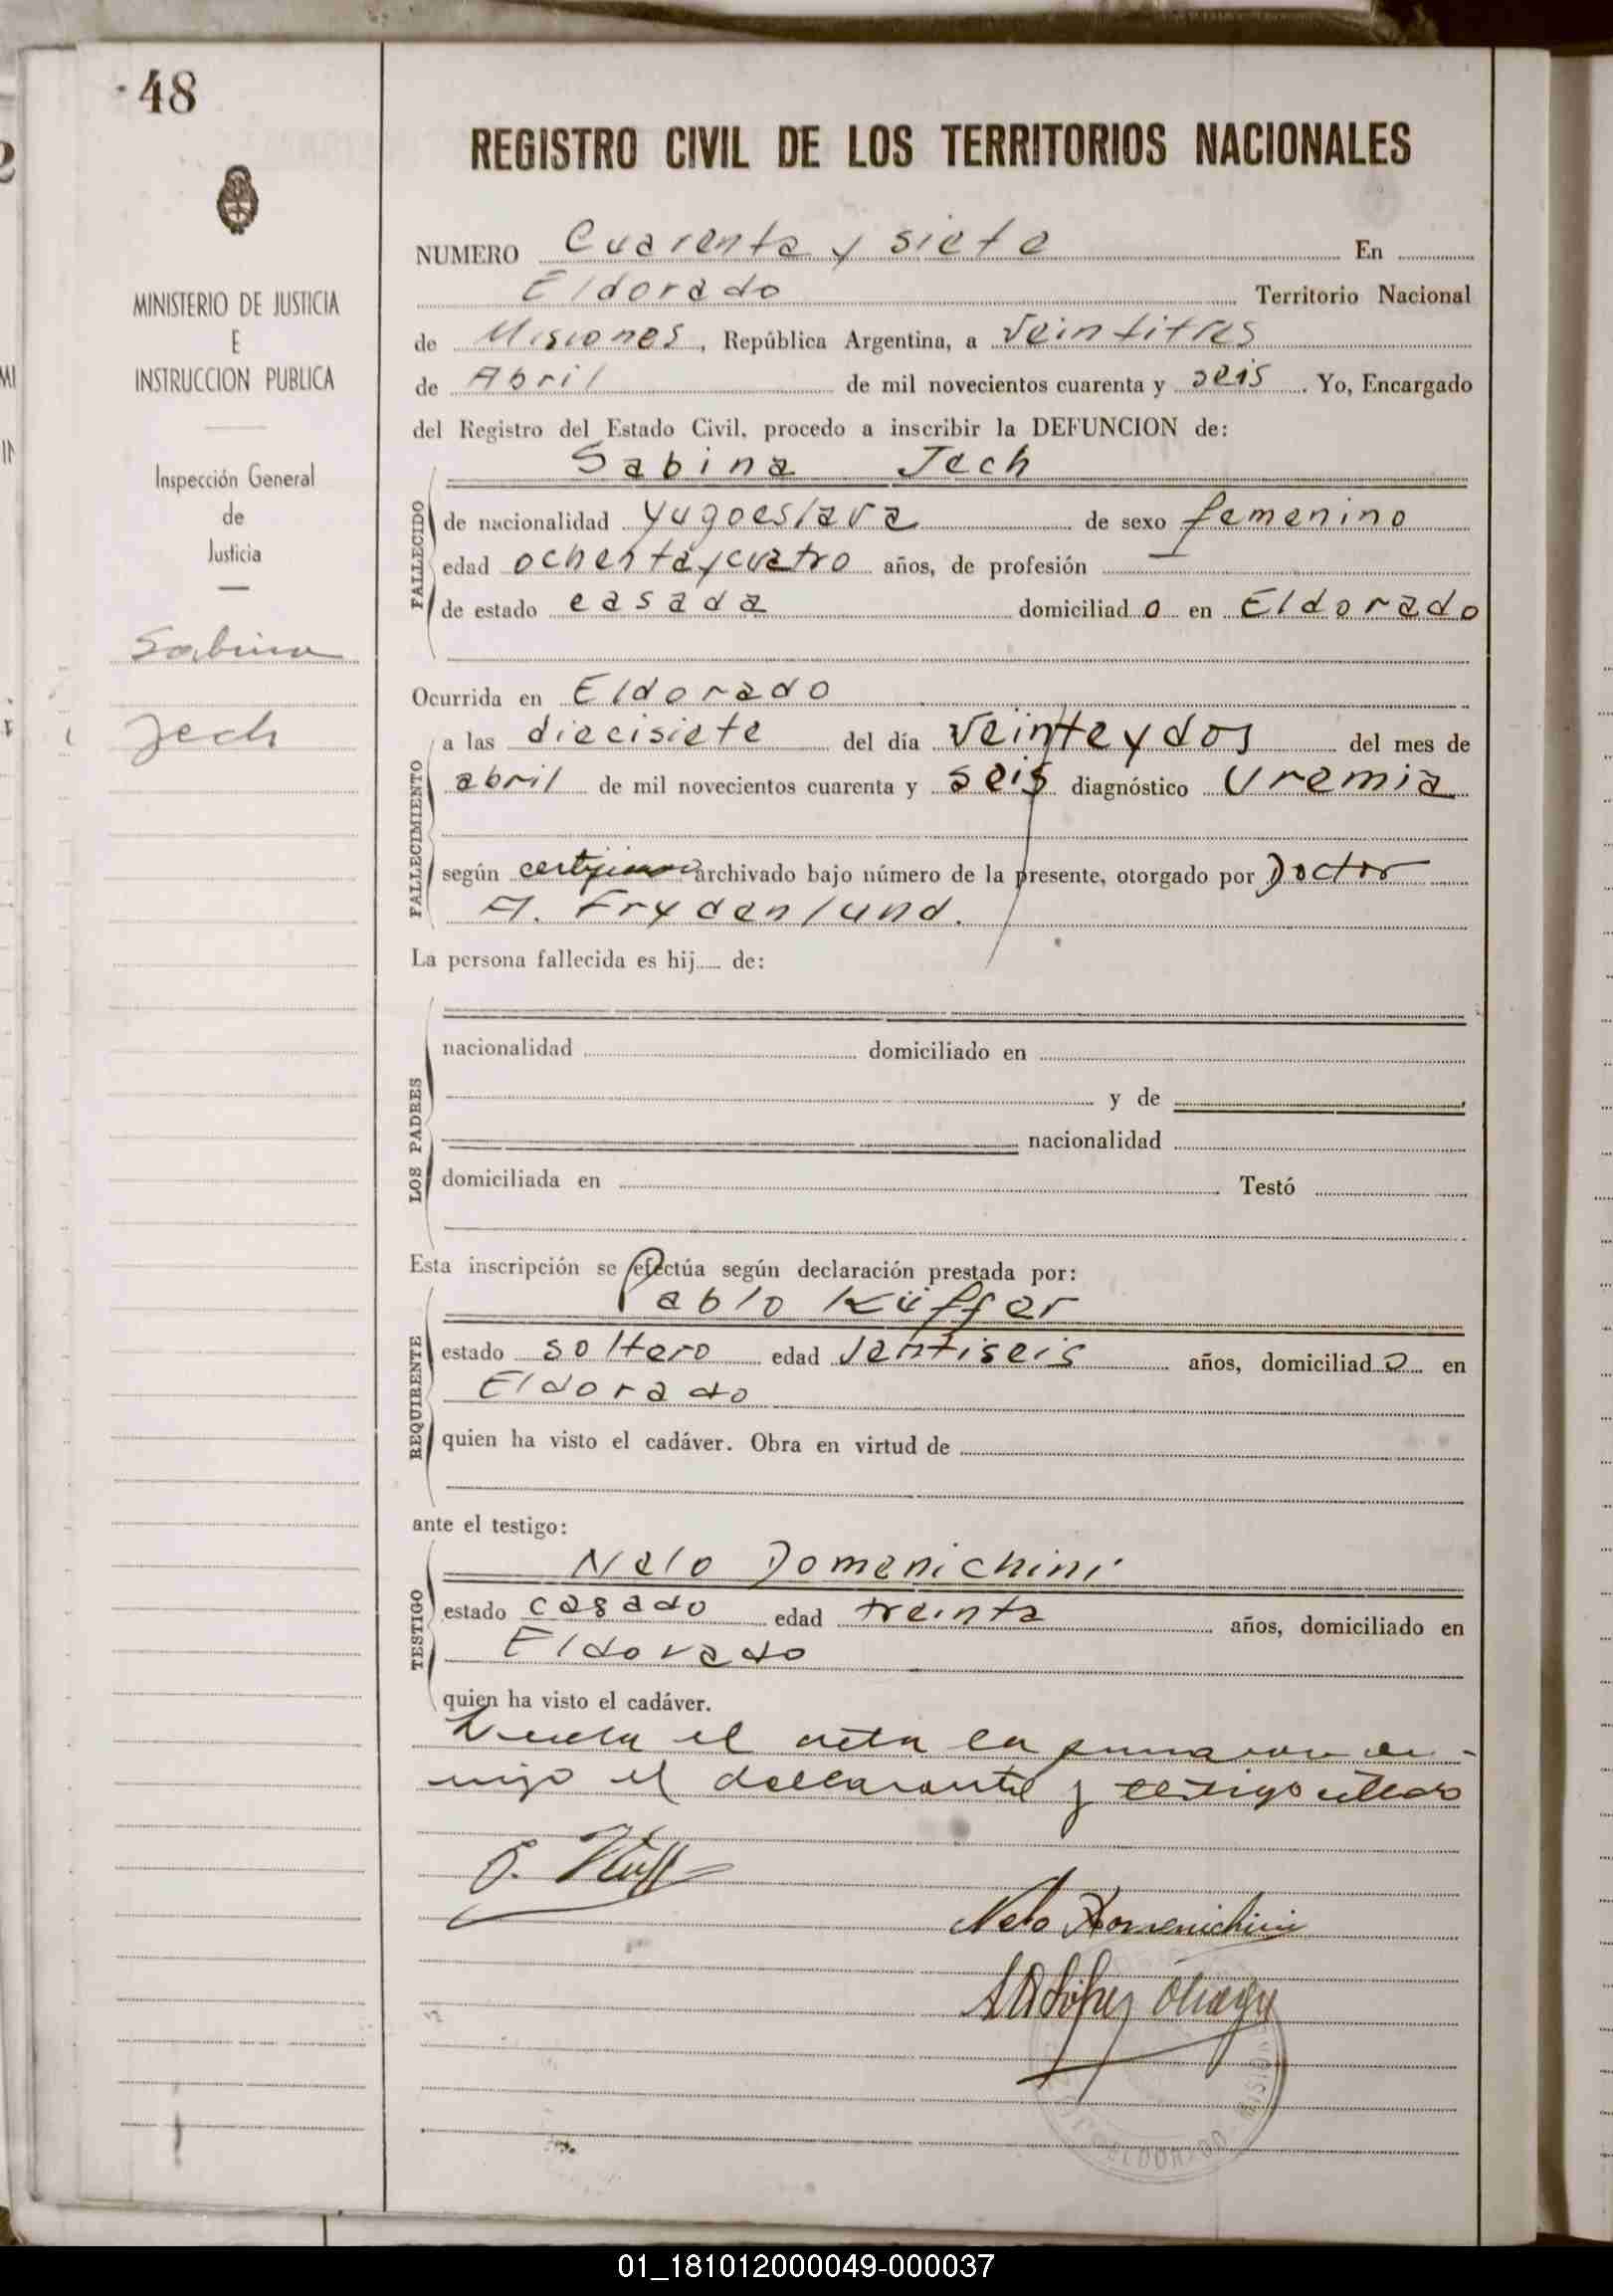 48
REGISTRO CIVIL DE LOS TERRITORIOS NACIONALES
MINISTERIO DE JUSTICIA
E
INSTRUCCION PUBLICA
Inspección General
de
Justicia
Sabina
Jech
NUMERO Cuarenta y siete En
Eldorado Territorio Nacional
de Misiones, República Argentina, a Veintitres
de Abril de mil novecientos cuarenta y seis. Yo, Encargado
del Registro del Estado Civil, procedo a inscribir la DEFUNCION de:
Sabina Jech
FALLECIDO
de nacionalidad yugoeslava de sexo femenino
edad ochenta y cuatro años, de profesión —
de estado casada domiciliado en Eldorado
Ocurrida en Eldorado
FALLECIMIENTO
a las diecisiete del día veinte y dos del mes de
abril de mil novecientos cuarenta y seis diagnóstico Uremia
según archivado bajo número de la presente, otorgado por Doctor
A. Frydenlund.
La persona fallecida es hij..... de:
LOS PADRES
nacionalidad domiciliado en
y de
nacionalidad
domiciliada en Testó
Esta inscripción se efectúa según declaración prestada por:
Pablo Küffer
REQUIRENTE
estado soltero edad Ventiseis años, domiciliado en
Eldorado
quien ha visto el cadáver. Obra en virtud de
ante el testigo:
Nelo Domenichini
TESTIGO
estado casado edad treinta años, domiciliado en
Eldorado
quien ha visto el cadáver.
el acta la
el declarante y testigo
Nelo Domenichini
01_181012000049-000037